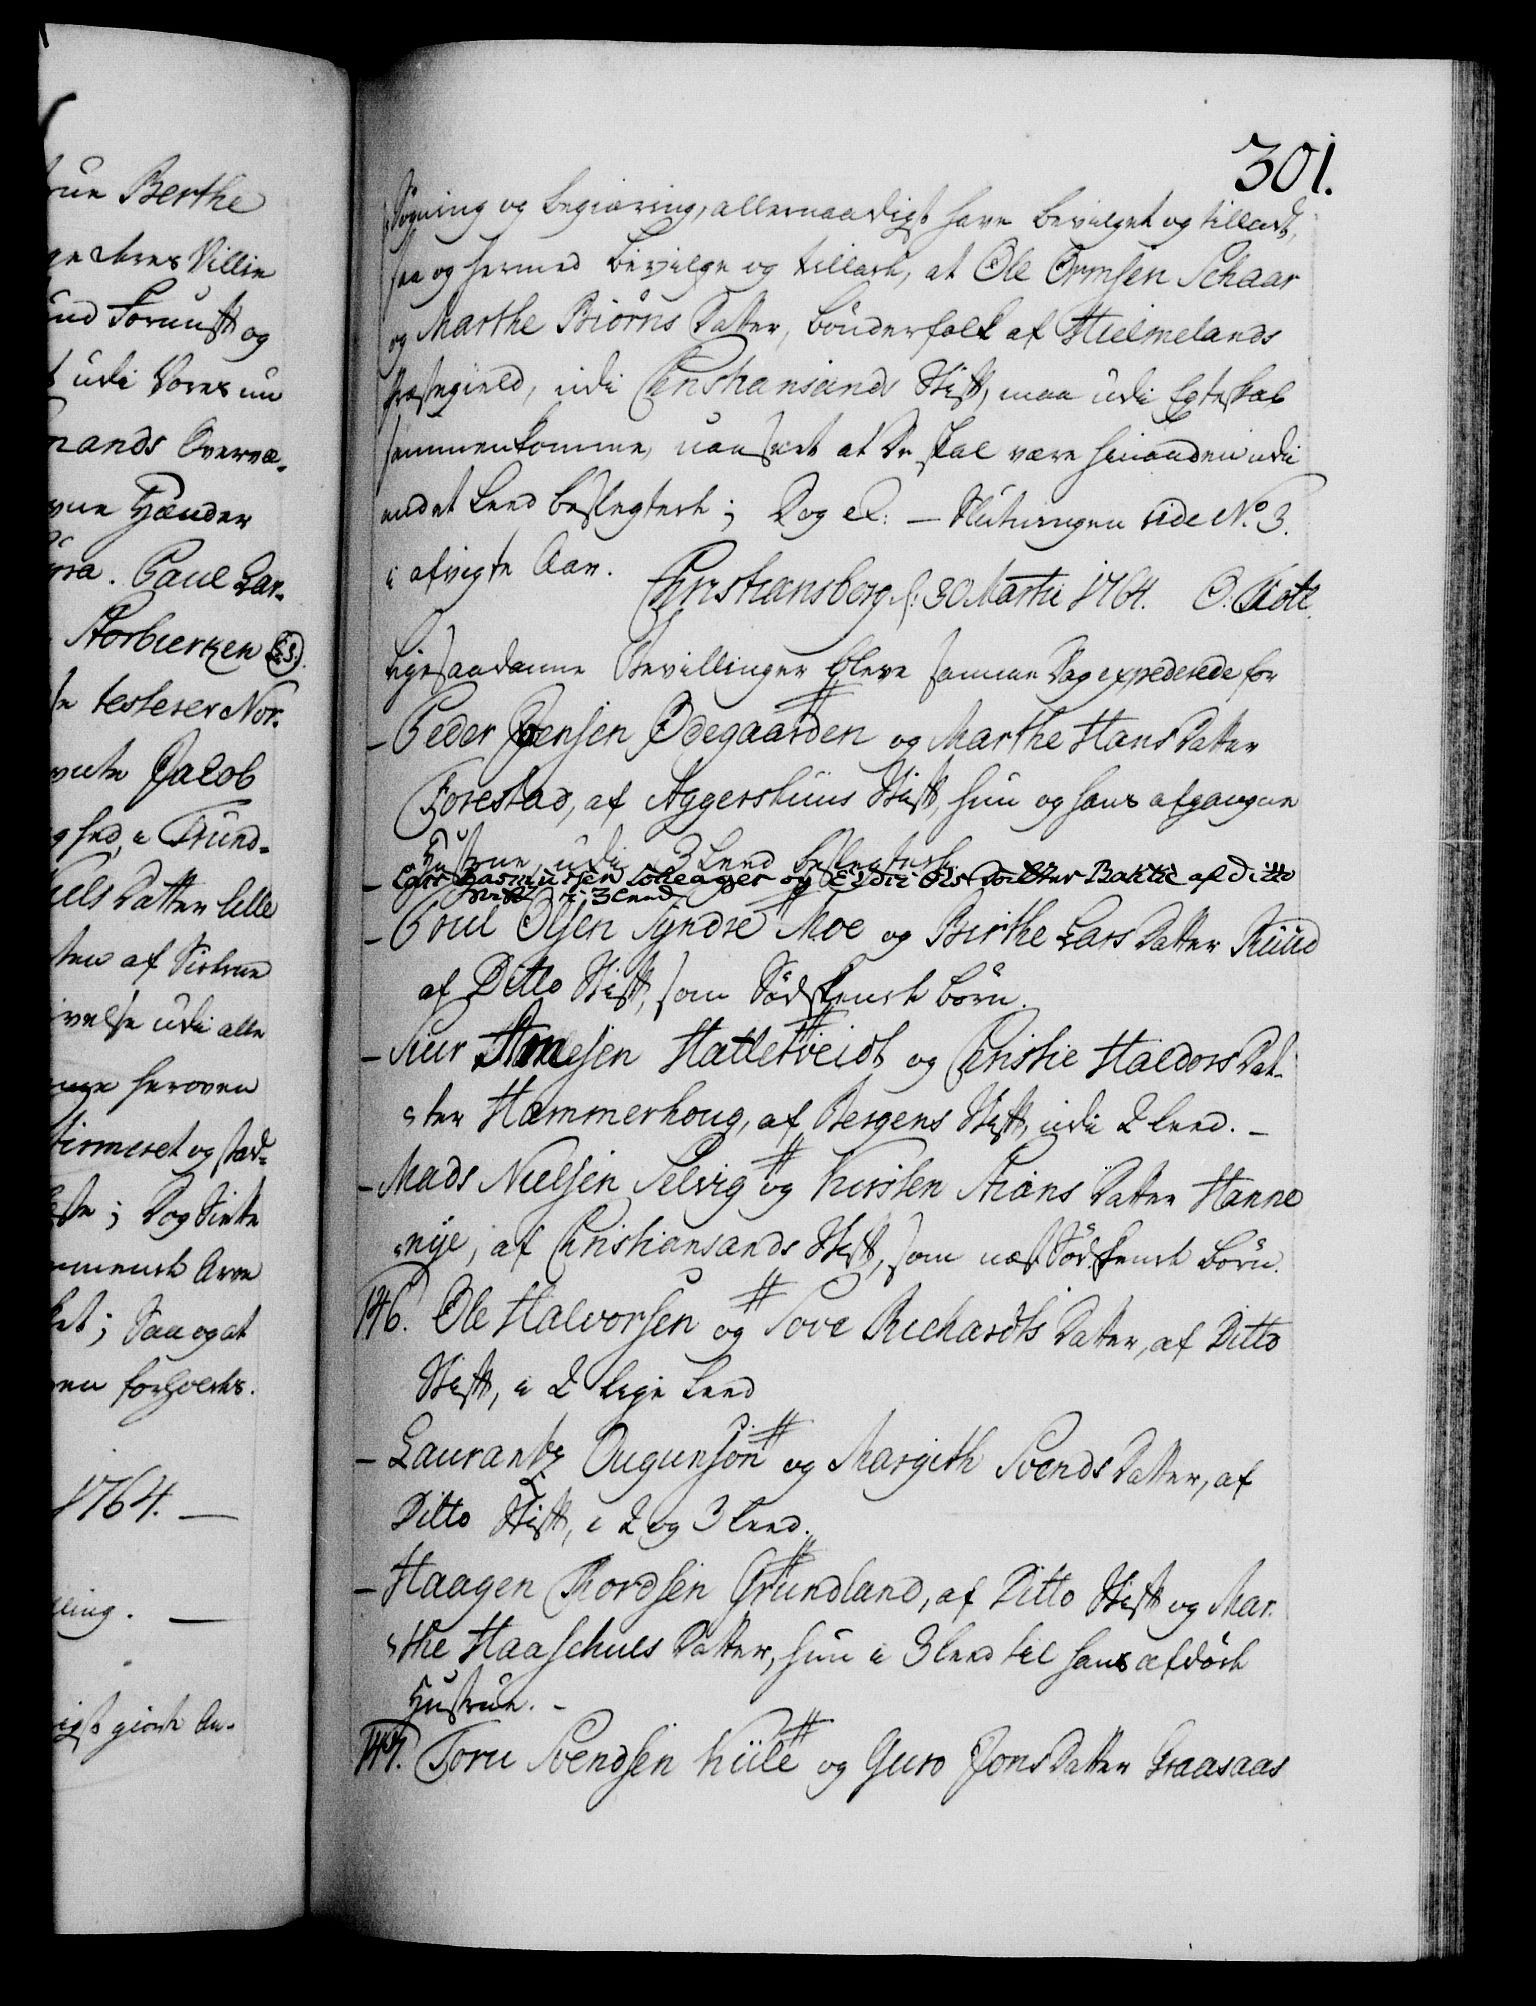 rue Berthe
ge deres Villie
und Fornuft og
t udi Vores nu
mands Overvæ-
vne Hænder
. Paul Lar-
Storbierken LS.
testerer Nor-
Jacob
ghed, i Trund-
iels Datter Lille
sten af Sistrene
ivelse udi alle
heroven
firmeret og stad-
; Dog Sidste
Arve
ket; Saa og at
forholdes.
1764. —
lling. —
igst giorte An-
301.
søgning og begiæring, allernaadigst have bevilget og tilladt,
saa og hermed bevilge og tillade, at Ole Ormsen Schaar
og Marthe Biörns Datter, bönderfolk af Hielmelands
Præstegield, udi Christiansands Stift, maa udi Egteskab
sammenkomme, uanseet at de skal være hinanden udi
andet Leed beslegtede; Dog etc: — Slutningen vide No. 3.
i afvigte Aar.
Christiansborg d: 30 Martii 1764. O. Thott.
Ligesaadanne Bevillinger bleve samme Dag expederede for
– Peder Jensen Ødegaarden og Marthe Hans Datter
Forestad, af Aggershuus Stift, hun og hans afgangne
Hustrue udi 3 Leed beslegtede
– Rasmussen og Ols Datter Bakke af ditto
Stift i 3 Leed
– Poul Olsen Syndre Moe og Birthe Lars Datter Ruud
af Ditto Stift, som Södskende börn.
– Siur Hatletveidt og Christie Haldors Dat-
ter Hammerhoug, af Bergens Stift, udi 2 leed. –
– Mads Nielsen Selvig og Kirsten Stians Datter Hanne
nye, af Christiansands Stift, som næst Södskende Börn.
146. Ole Halvorsen og Tove Richardts Datter, af Ditto
Stift, i 2 lige Leed
– Laurantz Ougunsön og Margith Svends Datter, af
Ditto Stift, i 2 og 3 leed.
– Haagen Thordsen Grundland, af Ditto Stift og Mar-
the Haaschuls Datter, hun i 3 leed til hans afdöde
Hustrue. –
147. Toru Svendsen Kiile og Guro Jons Datter Graasaas